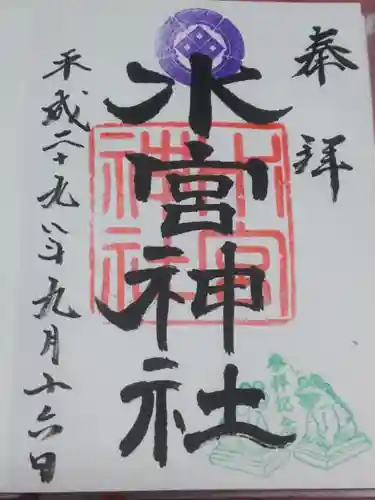 奉拝
水宮神社
水宮神社
参拝記念
平成二十九年九月十六日